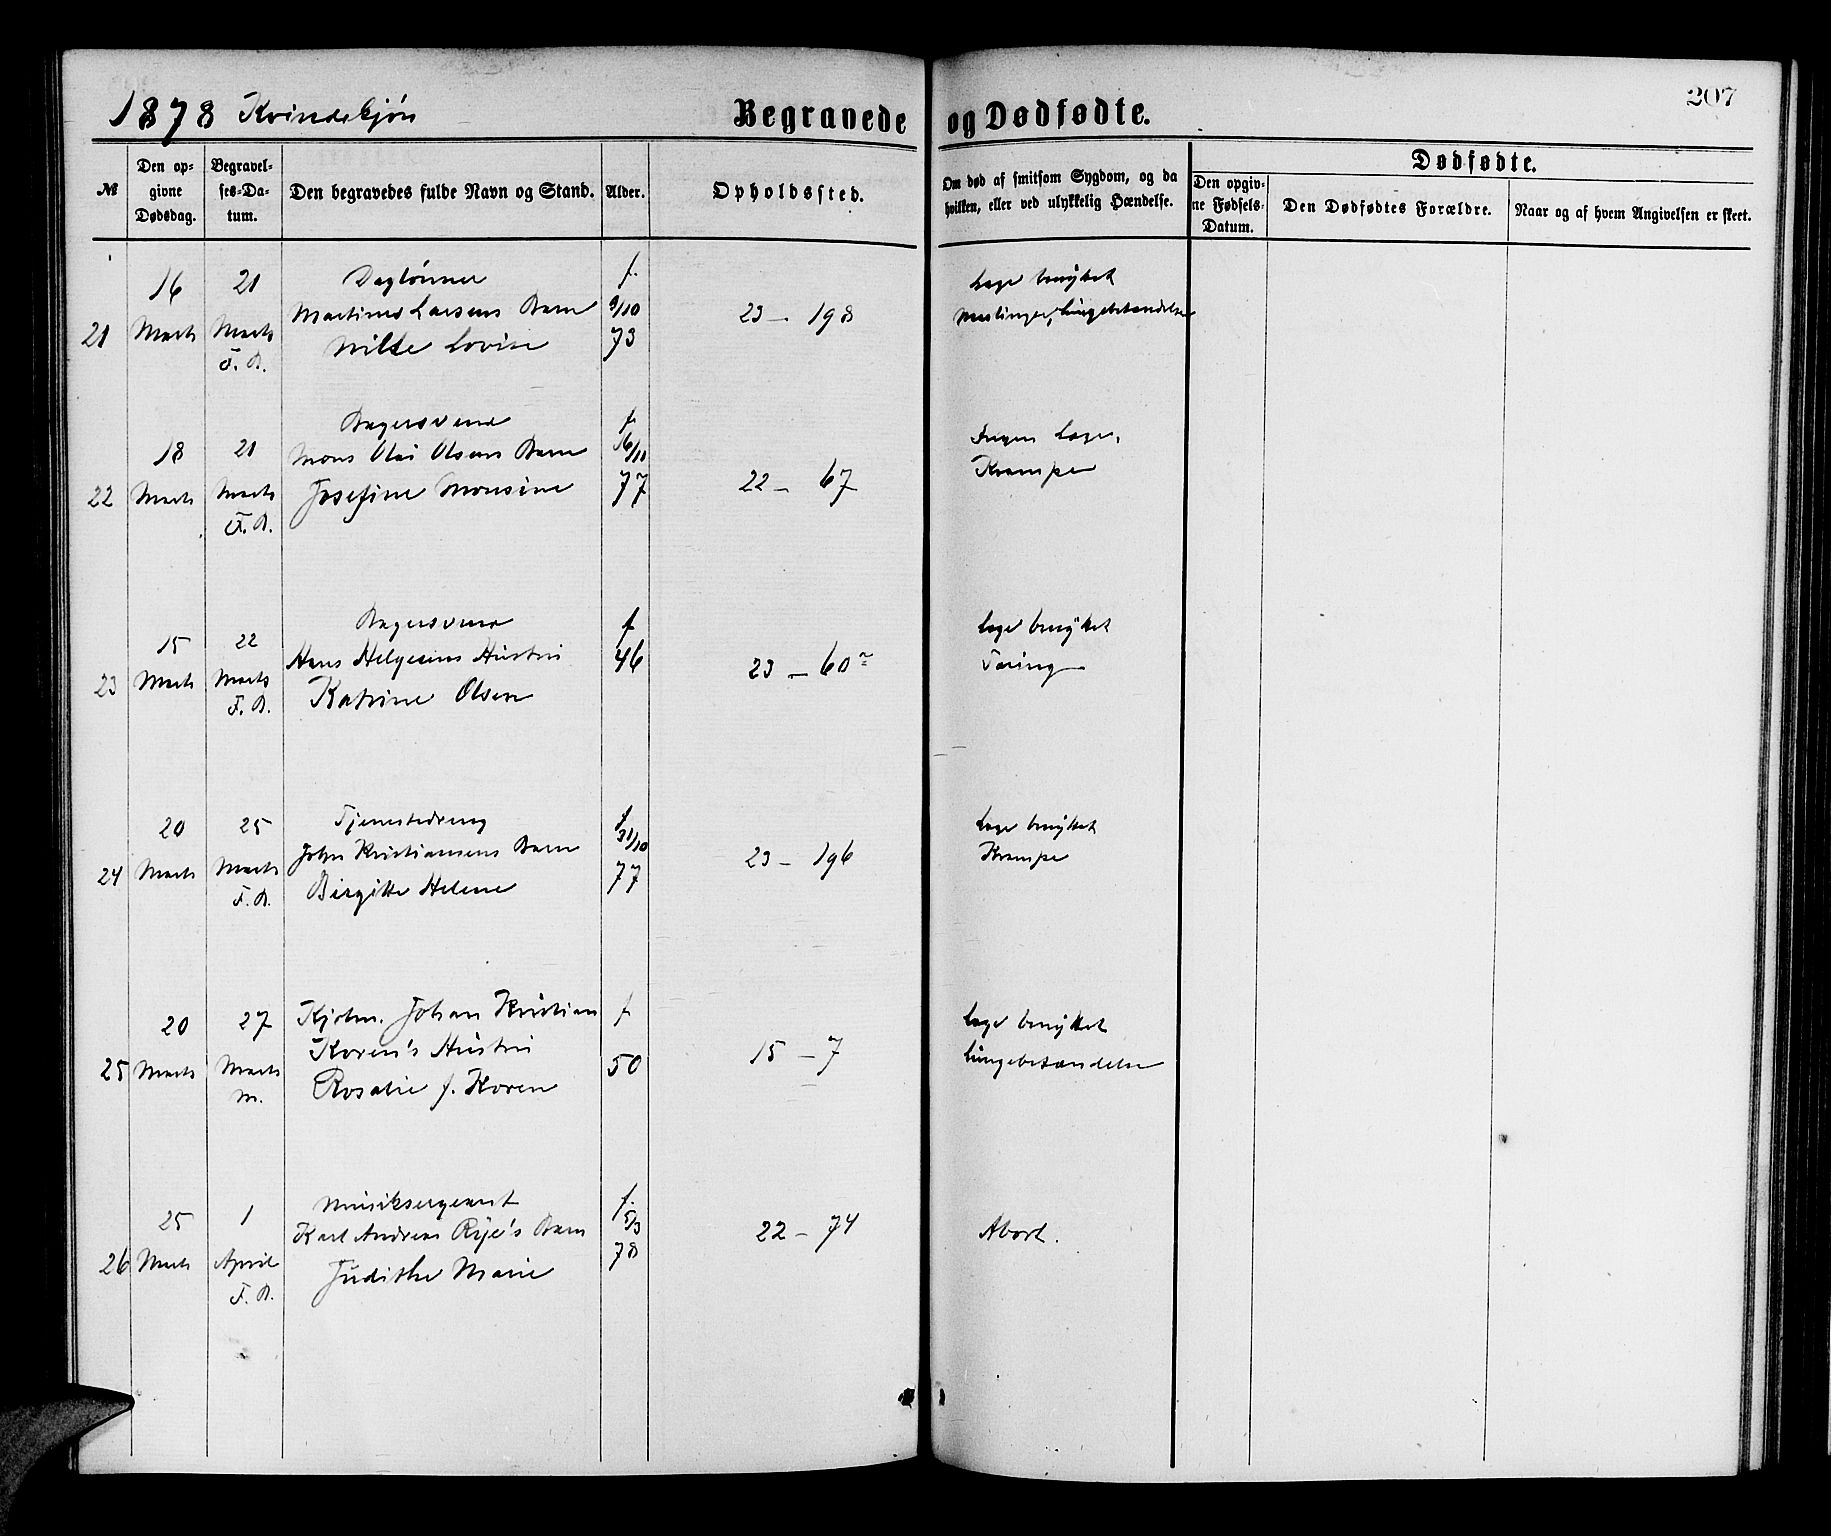 1878 Kvindekjøn
Begravede og Dødfødte.
207
№
Den opgivne Dødsdag.
Begravelses-Datum.
Den begravedes fulde Navn og Stand.
Alder.
Opholdssted.
Om død af smitsom Sygdom, og da hvilken, eller ved ulykkelig Hændelse.
Dødfødte.
Den opgivne Fødsels-Datum.
Den Dødfødtes Forældre.
Naar og af hvem Angivelsen er skeet.
21
16 Marts
21 Marts F. B.
Daglønner
Martinus Larsens Barn
Milde Lovise
f. 9/10 73
23 - 198
Læge benyttet
Meslinger, Lungebetændelse
22
18 Marts
21 Marts F. B.
Bagersvend
Mons Olai Olsens Barn
Josefine Monsine
f. 16/11 77
22 - 67
Ingen Læge,
Krampe
23
15 Marts
22 Marts F. B.
Bagersvend
Hans Helgesens Hustru
Katrine Olsen
f. 46
23 - 60
Læge benyttet
Tæring
24
20 Marts
25 Marts F. B.
Tjenestedreng
John Kristiansens Barn
Birgitte Helene
f. 31/10 77
23 - 196
Læge benyttet
Krampe
25
20 Marts
27 Marts M.
Kjøbm. Johan Kristian
Koren's Hustru
Rosalie f. Koren
f. 50
15 - 7
Læge benyttet
Lungebetændelse
26
25 Marts
1 April F. B.
Musiksergeant
Karl Andreas Rye's Barn
Judithe Marie
f. 5/3 78
22 - 74
Abort.